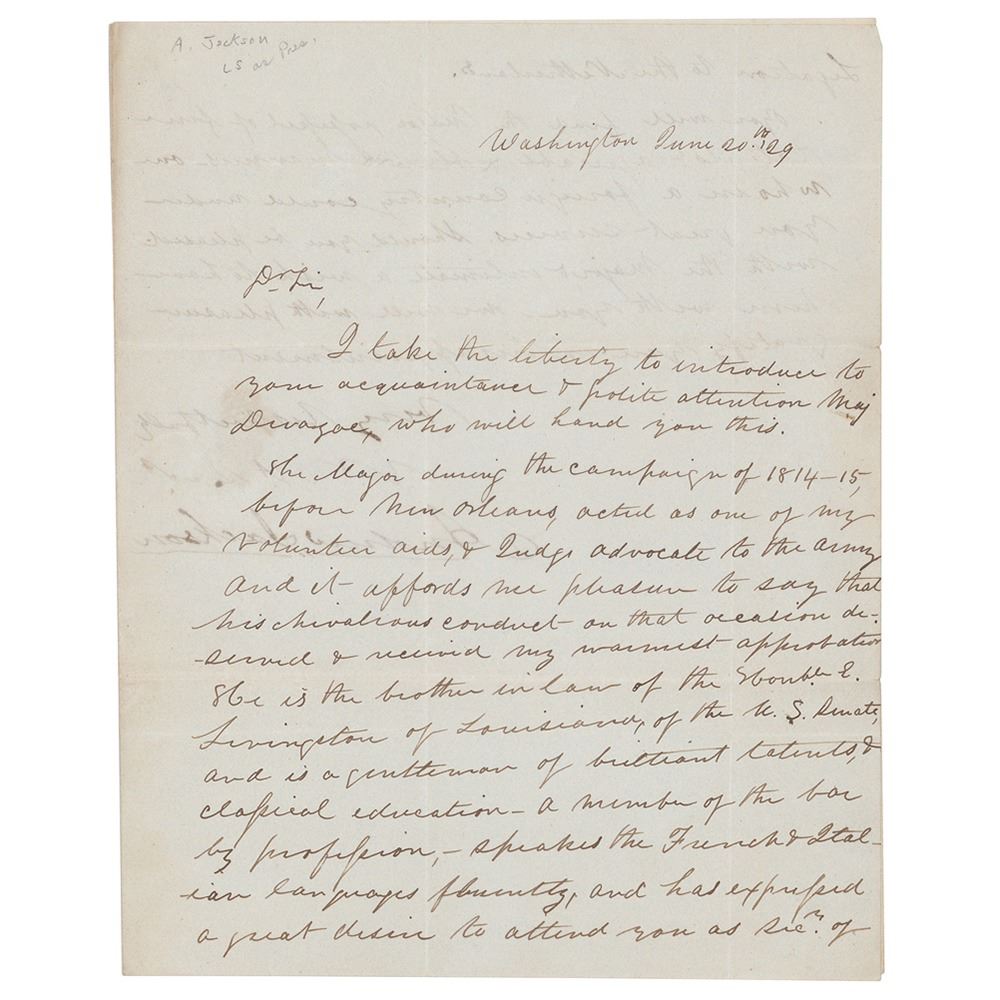 A. Jackson
LS as Pres.
Washington June 20.th 1829
Dr Sir,
I take the liberty to introduce to
your acquaintance & polite attention Maj
Davazac, who will hand you this.
The Major during the campaign of 1814-15,
before New Orleans, acted as one of my
volunteer aids, & Judge advocate to the army
and it affords me pleasure to say that
his chivalrous conduct on that occasion de-
-served & received my warmest approbation
He is the brother in law of the Honble. E.
Livingston of Louisiana, of the U. S. Senate,
and is a gentleman of brilliant talents, &
classical education - a member of the bar
by profession, - speakes the French & Ital-
-ian languages fluently, and has expressed
a great desire to attend you as Secy. of